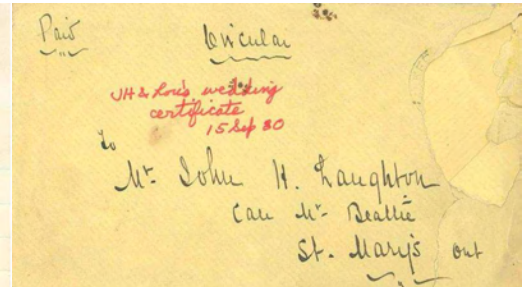 Paid
Circular
JH & Lou's wedding
certificate
15 Sep 80
To
Mr. John H. Laughton
Care Mr. Beattie
St. Mary's Ont